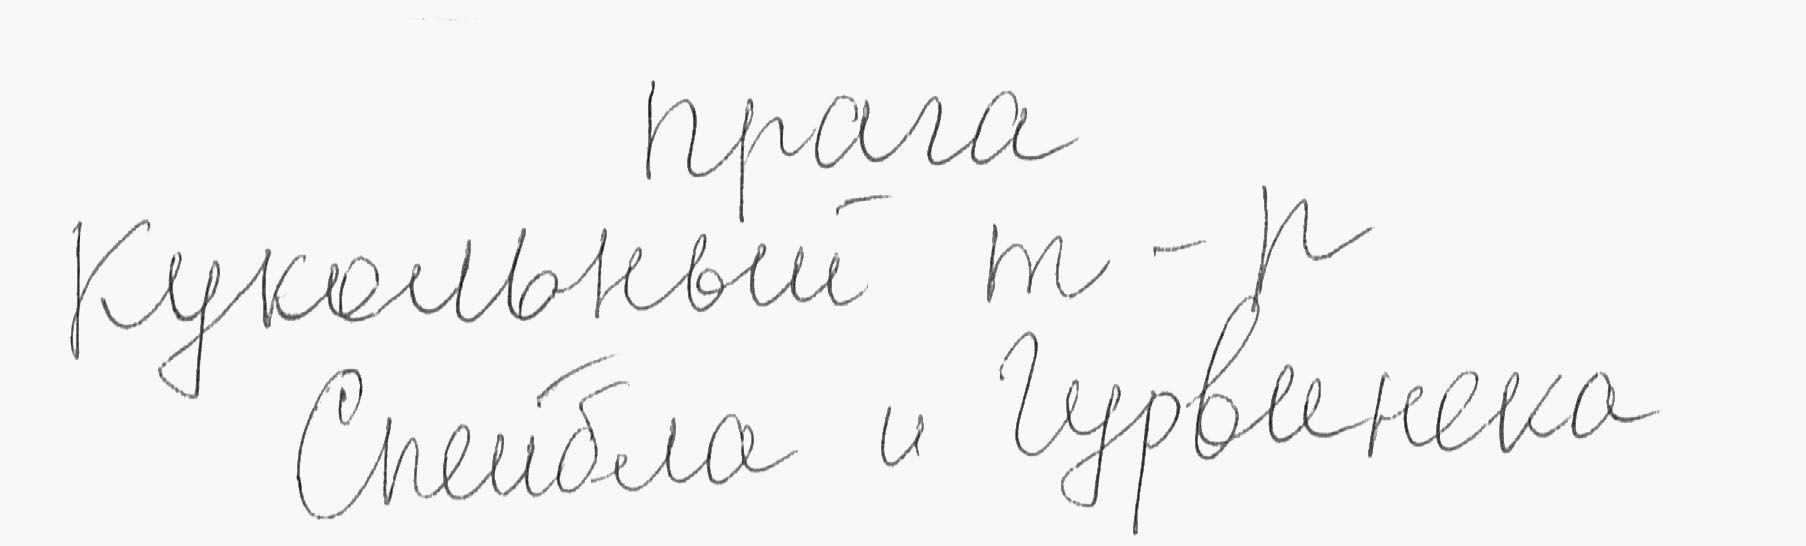 прага
Кукольный т-р
Спейбла и Гурвинека